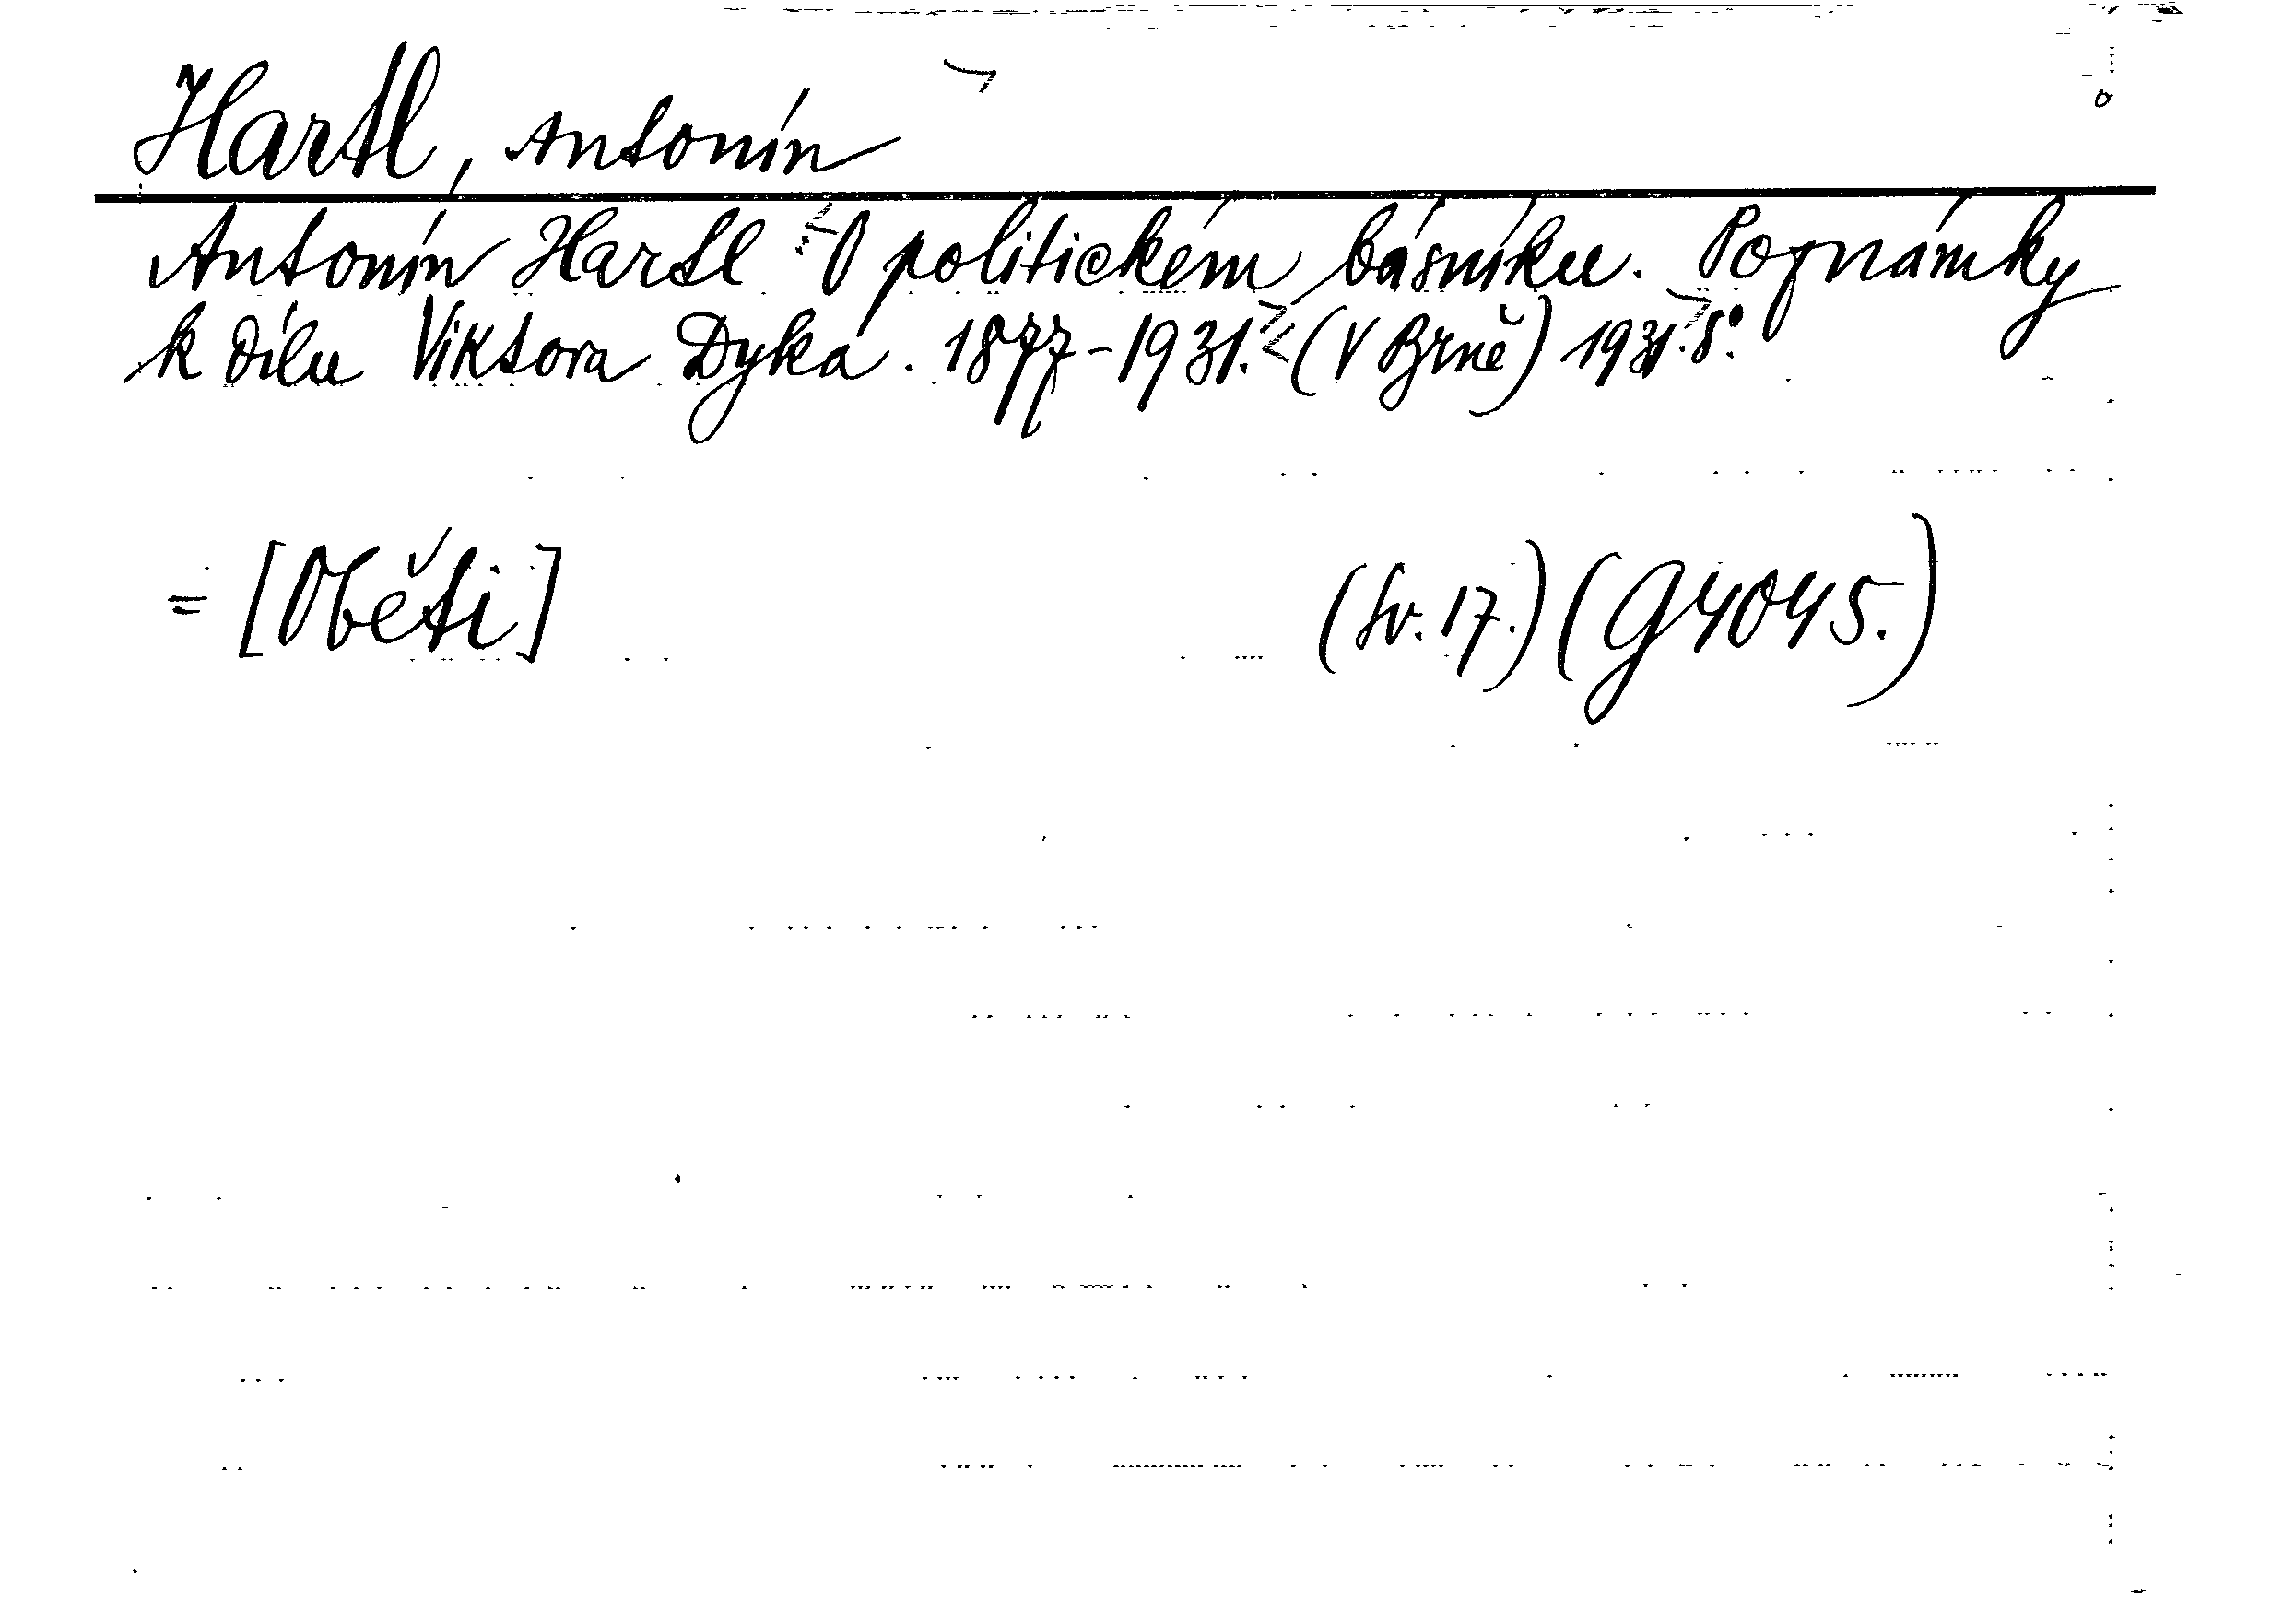 Hartl, Antonín
Antonín Hartl : O politickém básníku. Poznámky
k dílu Viktora Dyka. 1877-1931. (V Brně) 1931. 8°.
= [Oběti] (Sv. 17.) (G 4045.)